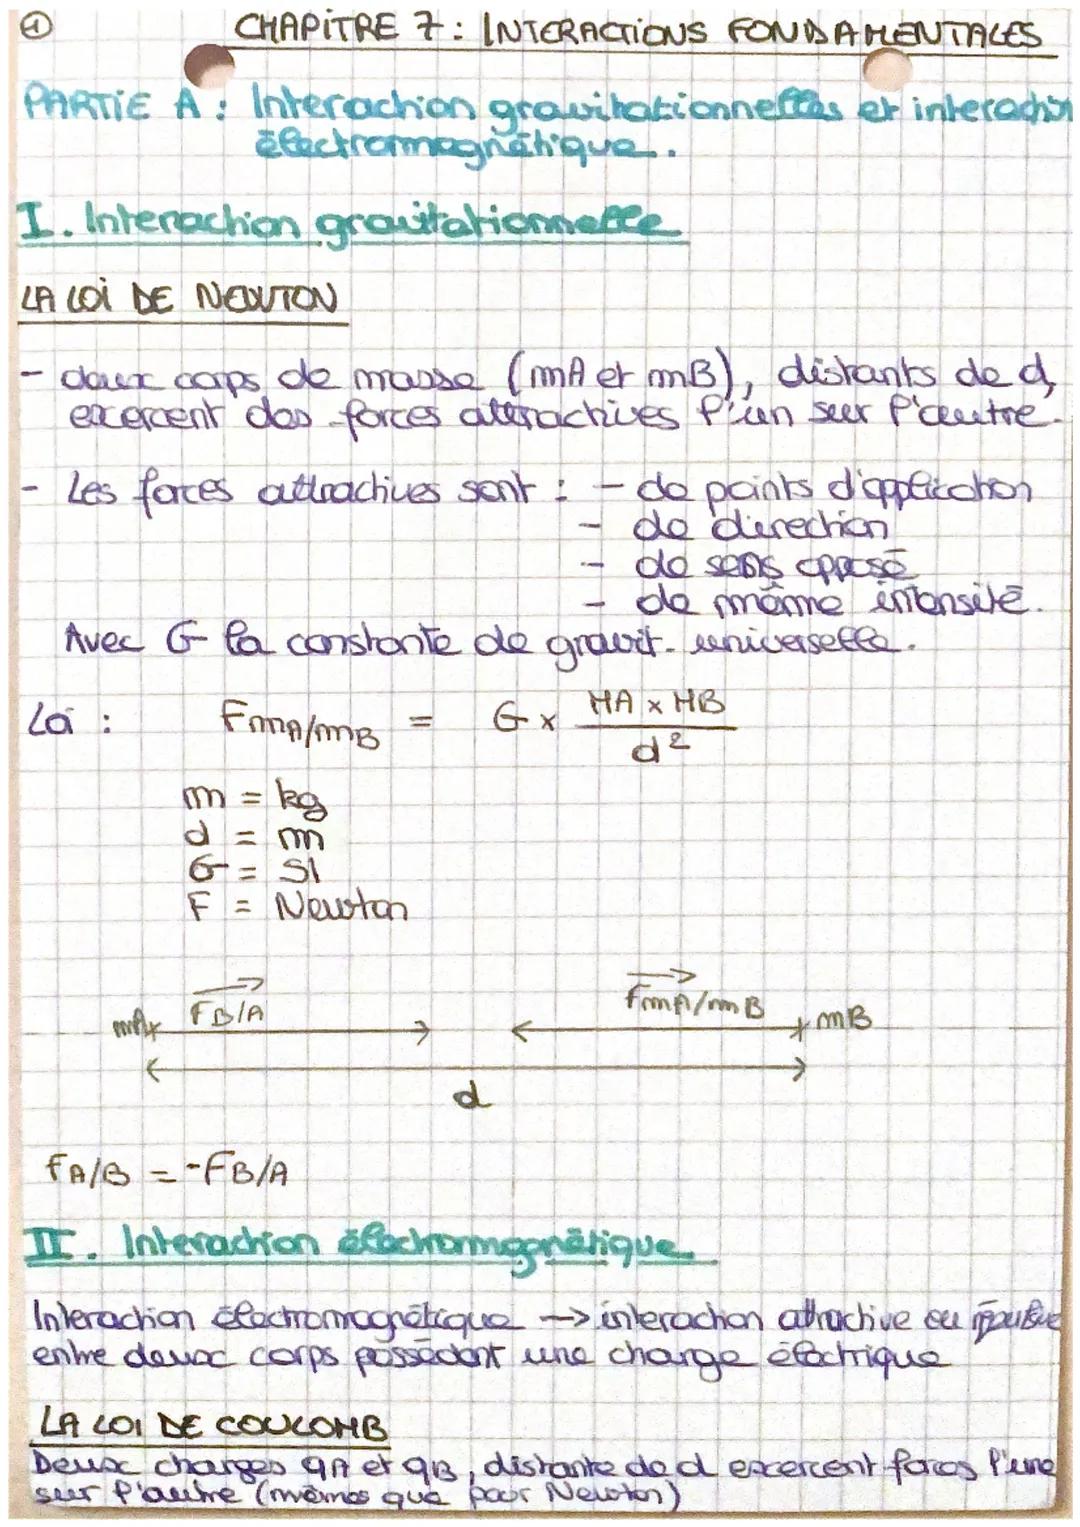 1
CHAPITRE 7 : INTERACTIONS FONDAMENTALES
PARTIE A : Interaction gravitationnelles et interaction
électromagnétique.
I. Interaction gravitationnelle
LA LOI DE NEWTON
- deux corps de masse (mA et mB), distants de d,
exercent des forces attractives l'un sur l'autre.
- Les forces attractives sont : - de points d'application
- de direction
- de sens opposé
- de même intensité.
Avec G la constante de gravit. universelle.
Loi : FmA/mB = G x MA x MB
d²
m = kg
d = m
G = SI
F = Newton
mA FB/A FmA/mB mB
d
fA/B = -FB/A
II. Interaction électromagnétique
Interaction électromagnétique → interaction attractive ou répulsive
entre deux corps possédant une charge électrique
LA LOI DE COULOMB
Deux charges qA et qB, distante de d exercent forces l'une
sur l'autre (mêmes que pour Newton)